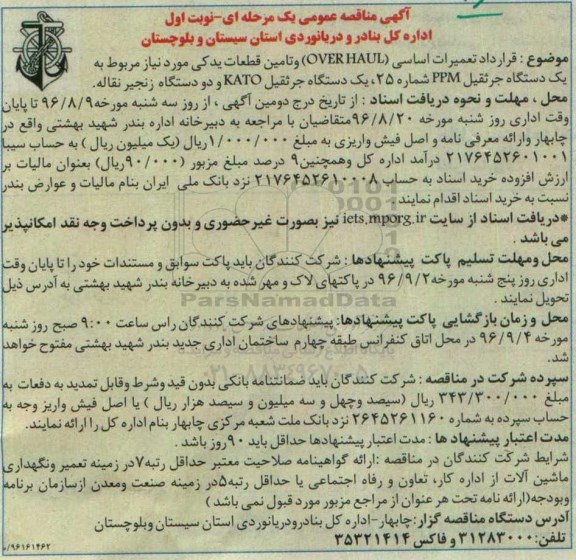 آگهی مناقصه عمومی یک مرحله ای-نوبت اول
اداره کل بنادر و دریانوردی استان سیستان و بلوچستان
موضوع : قرارداد تعمیرات اساسی (OVER HAUL) وتامین قطعات یدکی مورد نیاز مربوط به
یک دستگاه جرثقیل PPM شماره ۲۵، یک دستگاه جرثقیل KATO و دو دستگاه زنجیر نقاله.
محل ، مهلت و نحوه دریافت اسناد : از تاریخ درج دومین آگهی ، از روز سه شنبه مورخه ۹۶/۸/۹ تا پایان
وقت اداری روز شنبه مورخه ۹۶/۸/۲۰ متقاضیان با مراجعه به دبیرخانه اداره بندر شهید بهشتی واقع در
چابهار وارائه معرفی نامه و اصل فیش واریزی به مبلغ ۱/۰۰۰/۰۰۰ ریال (یک میلیون ریال ) به حساب سیبا
۲۱۷۶۴۵۲۶۰۱۰۰۱ درآمد اداره کل وهمچنین ۹ درصد مبلغ مزبور (۹۰/۰۰۰ ریال) بعنوان مالیات بر
ارزش افزوده خرید اسناد به حساب ۲۱۷۶۴۵۲۶۱۰۰۰۸ نزد بانک ملی ایران بنام مالیات و عوارض بندر
نسبت به خرید اسناد اقدام نمایند .
*دریافت اسناد از سایت iets.mporg.ir نیز بصورت غیرحضوری و بدون پرداخت وجه نقد امکانپذیر
می باشد .
محل ومهلت تسلیم پاکت پیشنهادها : شرکت کنندگان باید پاکت سوابق و مستندات خود را تا پایان وقت
اداری روز پنج شنبه مورخه ۹۶/۹/۲ در پاکتهای لاک و مهر شده به دبیرخانه بندر شهید بهشتی به آدرس ذیل
تحویل نمایند .
ParsNamadData
محل و زمان بازگشایی پاکت پیشنهادها: پیشنهادهای شرکت کنندگان راس ساعت ۹:۰۰ صبح روز شنبه
مورخه ۹۶/۹/۴ در محل اتاق کنفرانس طبقه چهارم ساختمان اداری جدید بندر شهید بهشتی مفتوح خواهد
شد.
سپرده شرکت در مناقصه : شرکت کنندگان باید ضمانتنامه بانکی بدون قید وشرط وقابل تمدید به دفعات به
مبلغ ۳۴۳/۳۰۰/۰۰۰ ریال (سیصد وچهل و سه میلیون و سیصد هزار ریال ) یا اصل فیش واریز وجه به
حساب سپرده به شماره ۲۶۴۵۲۶۱۱۶۰ نزد بانک ملت شعبه مرکزی چابهار بنام اداره کل را ارائه نمایند.
مدت اعتبار پیشنهاد ها : مدت اعتبار پیشنهادها حداقل باید ۹۰ روز باشد .
شرایط شرکت کنندگان در مناقصه :ارائه گواهینامه صلاحیت معتبر حداقل رتبه ۷ در زمینه تعمیر ونگهداری
ماشین آلات از اداره کار، تعاون و رفاه اجتماعی یا حداقل رتبه ۵ در زمینه صنعت ومعدن ازسازمان برنامه
وبودجه(ارائه نامه تحت هر عنوان از مراجع مزبور مورد قبول نمی باشد )
آدرس دستگاه مناقصه گزار:چابهار-اداره کل بنادرودریانوردی استان سیستان وبلوچستان
تلفن:۳۱۲۸۳۰۰۰ و فاکس ۳۵۳۲۱۴۱۴
۹۶۱۶۱۴۶۲/